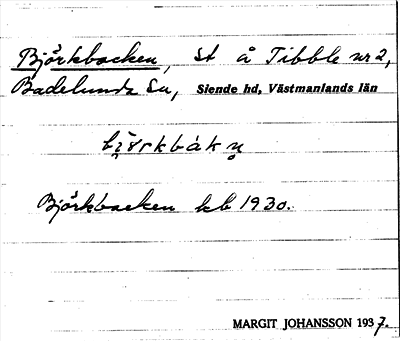 Björkbacken, St å Tibble nr 2,
Badelunda Sn, Siende hd, Västmanlands län
Björkbacken kb 1930.
MARGIT JOHANSSON 1937.